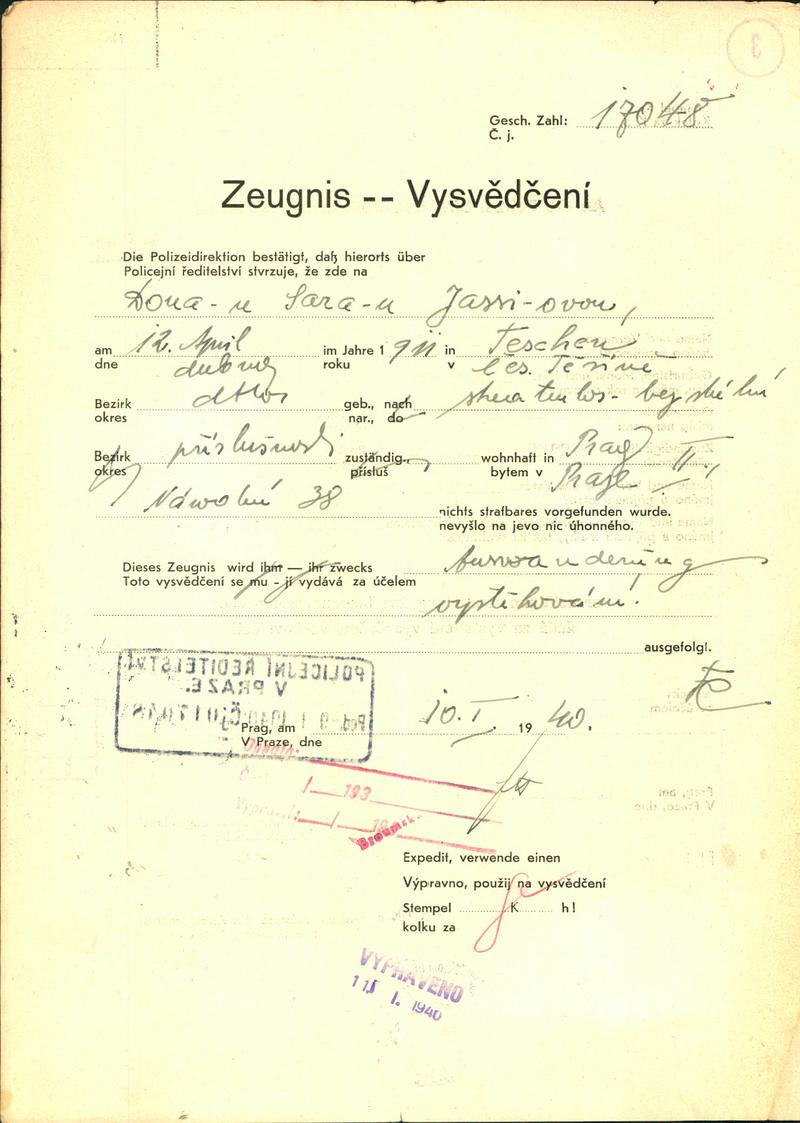 3
Gesch. Zahl: 17048
Č. j.
Zeugnis -- Vysvědčení
Die Polizeidirektion bestätigt, daß hierorts über
Policejní ředitelství stvrzuje, že zde na
Dona-u Sara-u Jassi-ovou,
am 12. April im Jahre 1 911 in Teschen
dne dubna roku v Čes. Těšíně
Bezirk dtto geb., nach
okres nar., do
Bezirk příslušnosti zuständig, wohnhaft in Prag II.,
okres přísluš bytem v Praze
38 nichts strafbares vorgefunden wurde.
nevyšlo na jevo nic úhonného.
Dieses Zeugnis wird ihm — ihr zwecks Auswanderung
Toto vysvědčení se mu - jí vydává za účelem
vystěhování.
ausgefolgt.
POLICEJNÍ ŘEDITELSTVÍ
V PRAZE.
Prag, am 10. I. 19 40.
V Praze, dne
Došlo:
/ 193
Vypraveno: / 19
Expedit, verwende einen
Výpravno, použij na vysvědčení
Stempel K h!
kolku za
VYPRAVENO
I. 1940
Prag, am
V Praze, dne